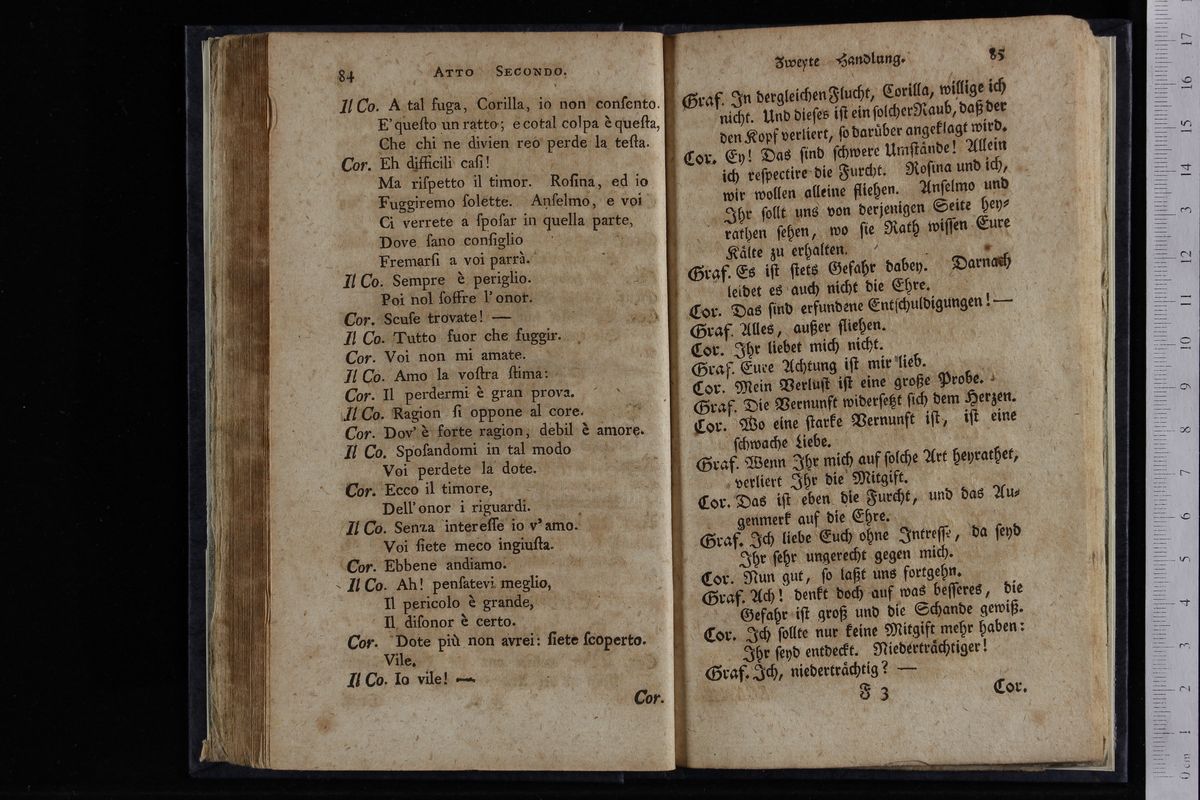 84 ATTO SECONDO.
Il Co. A tal fuga, Corilla, io non conſento.
E' queſto un ratto; e cotal colpa è queſta,
Che chi ne divien reo perde la teſta.
Cor. Eh difficili caſi!
Ma riſpetto il timor. Roſina, ed io
Fuggiremo ſolette. Anſelmo, e voi
Ci verrete a ſpoſar in quella parte,
Dove ſano conſiglio
Fremarſi a voi parrà.
Il Co. Sempre è periglio.
Poi nol ſoffre l'onor.
Cor. Scuſe trovate! —
Il Co. Tutto fuor che fuggir.
Cor. Voi non mi amate.
Il Co. Amo la voſtra ſtima:
Cor. Il perdermi è gran prova.
Il Co. Ragion ſi oppone al core.
Cor. Dov' è forte ragion, debil è amore.
Il Co. Spoſandomi in tal modo
Voi perdete la dote.
Cor. Ecco il timore,
Dell' onor i riguardi.
Il Co. Senza intereſſe io v'amo.
Voi ſiete meco ingiuſta.
Cor. Ebbene andiamo.
Il Co. Ah! penſatevi meglio,
Il pericolo è grande,
Il diſonor è certo.
Cor. Dote più non avrei: ſiete ſcoperto.
Vile.
Il Co. Io vile! —
Cor.
Zweyte Handlung. 85
Graf. In dergleichen Flucht, Corilla, willige ich
nicht. Und dieſes iſt ein ſolcher Raub, daß der
den Kopf verliert, ſo darüber angeklagt wird.
Cor. Ey! Das ſind ſchwere Umſtände! Allein
ich reſpectire die Furcht. Roſina und ich,
wir wollen alleine fliehen. Anſelmo und
Ihr ſollt uns von derjenigen Seite hey⸗
rathen ſehen, wo ſie Rath wiſſen Eure
Kälte zu erhalten.
Graf. Es iſt ſtets Gefahr dabey. Darnach
leidet es auch nicht die Ehre.
Cor. Das ſind erfundene Entſchuldigungen! —
Graf. Alles, außer fliehen.
Cor. Ihr liebet mich nicht.
Graf. Eure Achtung iſt mir lieb.
Cor. Mein Verluſt iſt eine große Probe.
Graf. Die Vernunft widerſetzt ſich dem Herzen.
Cor. Wo eine ſtarke Vernunft iſt, iſt eine
ſchwache Liebe.
Graf. Wenn Ihr mich auf ſolche Art heyrathet,
verliert Ihr die Mitgift.
Cor. Das iſt eben die Furcht, und das Au⸗
genmerk auf die Ehre.
Graf. Ich liebe Euch ohne Intreſſe, da ſeyd
Ihr ſehr ungerecht gegen mich.
Cor. Nun gut, ſo laßt uns fortgehn.
Graf. Ach! denkt doch auf was beſſeres, die
Gefahr iſt groß und die Schande gewiß.
Cor. Ich ſollte nur keine Mitgift mehr haben:
Ihr ſeyd entdeckt. Niederträchtiger!
Graf. Ich, niederträchtig? —
F 3 Cor.
17
16
15
14
13
12
11
10
9
8
7
6
5
4
3
2
1
0 cm